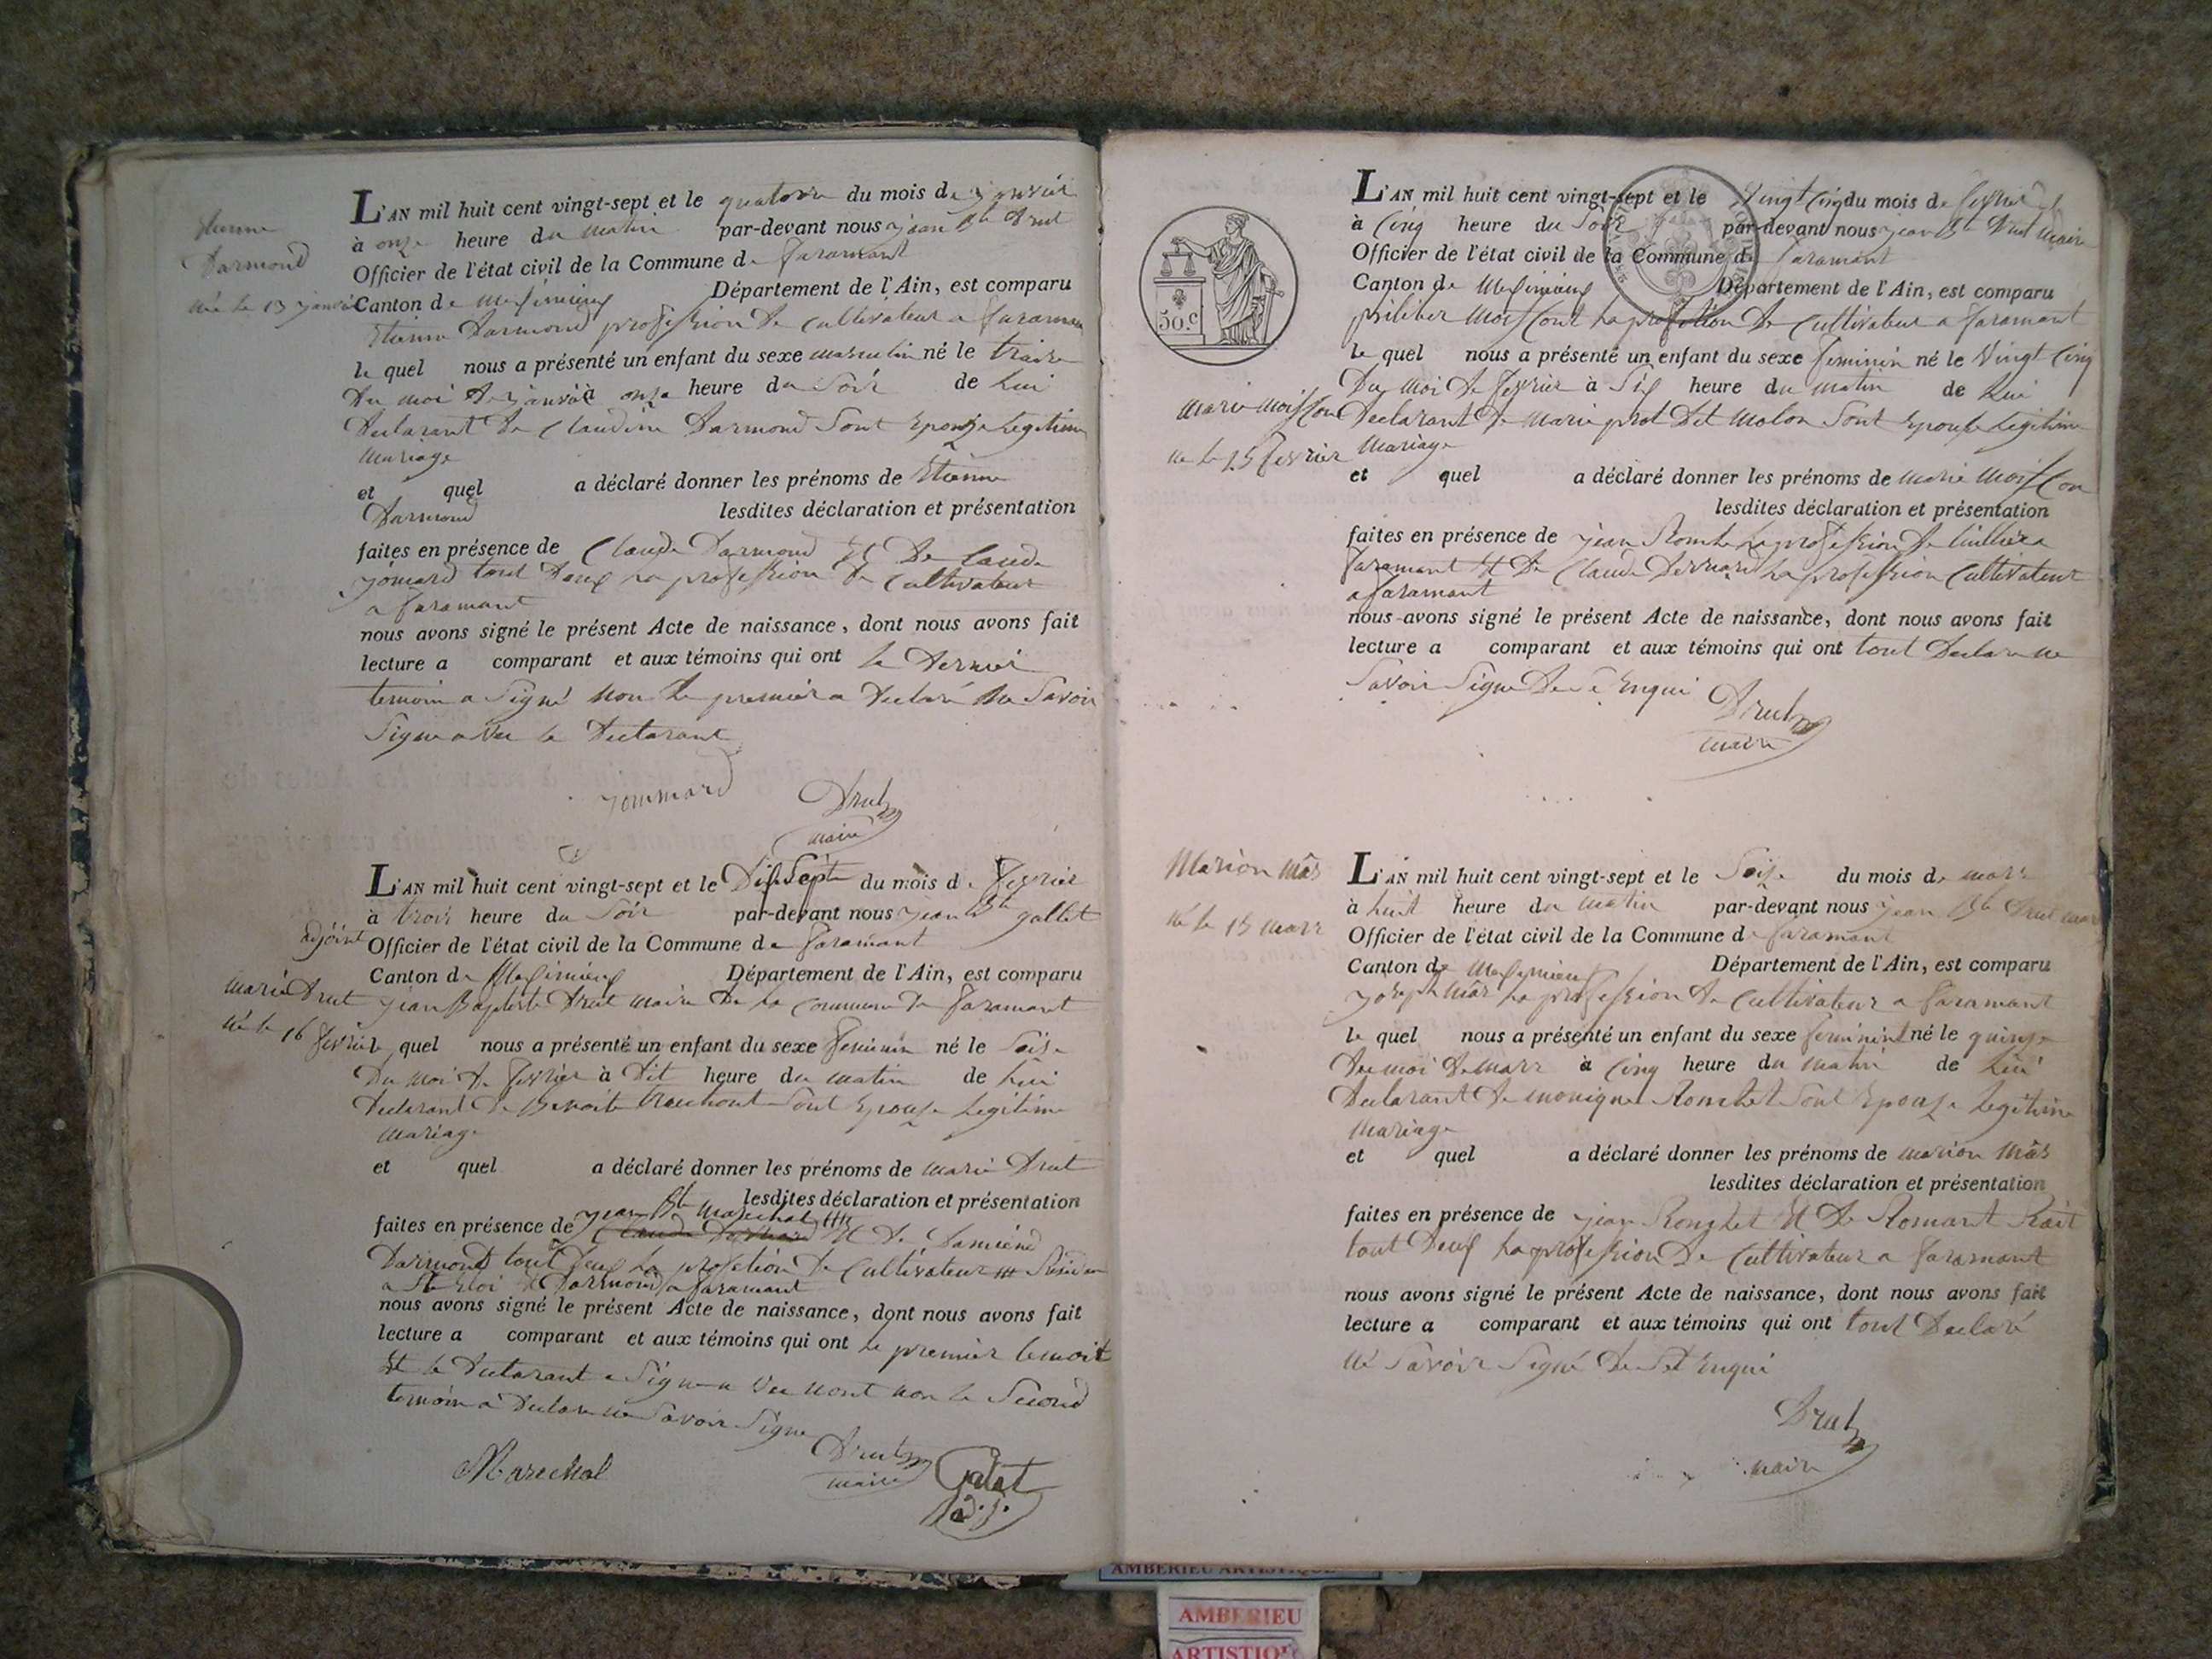 Etienne
Darmond
né le 13 janvier
L'AN mil huit cent vingt-sept et le quatorze du mois de janvier
à onze heure du matin par-devant nous jean Bte Drut
Officier de l'état civil de la Commune de faramant
Canton de Meximieux Département de l'Ain, est comparu
Etienne Darmond profession de cultivateur a faramant
le quel nous a présenté un enfant du sexe masculin né le traize
du moi de janvié à onze heure du Soir de lui
Declarant De Claudine Darmond Sont Epouze Legitime
mariage
et quel a déclaré donner les prénoms de Etienne
Darmond lesdites déclaration et présentation
faites en présence de Claude Darmond Et De Claude
jômard tout Deux La profession De Cultivateur
a faramant
nous avons signé le présent Acte de naissance, dont nous avons fait
lecture a comparant et aux témoins qui ont le Dernier
temoin a Signé non Le premier a Declaré ne Savoir
Signe a vec le Declarant
jommard Drut
maire
L'AN mil huit cent vingt-sept et le Dix Sept du mois de fevrier
à trois heure du Soir par-devant nous jean Bte gallet
adjoint Officier de l'état civil de la Commune de faramant
Canton de Meximieux Département de l'Ain, est comparu
marie Drut jean Baptiste Drut maire De La Commune De faramant
né le 16 fevrier le quel nous a présenté un enfant du sexe feminin né le Seise
Du moi De fevrier à Dit heure du matin de lui
Declarant De Benoite Sont Epouse Legitime
mariage
et quel a déclaré donner les prénoms de marie Drut
lesdites déclaration et présentation
jean Bte marechal
faites en présence de Claude Bernard Et De Damiend
Darmond tout Deux La profetion De Cultivateur
a St Eloi Darmond a faramant
nous avons signé le présent Acte de naissance, dont nous avons fait
lecture a comparant et aux témoins qui ont le premier temoit
Et le Declarant a Signe a vec nont non le Second
temoin a Declare ne Savoir Signe
Marechal Drut
maire
Galet
adj.
50.c
L'AN mil huit cent vingt-sept et le vingt cinq du mois de fevrier
à Cinq heure du Soir par-devant nous jean Bte Drut maire
Officier de l'état civil de la Commune de faramant
Canton de Meximieux Département de l'Ain, est comparu
philiber moisson La profession De Cultivateur a faramant
le quel nous a présenté un enfant du sexe feminin né le vingt Cinq
Du moi De fevrier à Six heure du matin de lui
marie moisson Declarant De marie prot Dit molon Sont Epouse Legitime
né le 25 fevrier mariage
et quel a déclaré donner les prénoms de marie moisson
lesdites déclaration et présentation
faites en présence de jean La profession De
faramant Et De Claude Bernard La profession Cultivateur
a faramant
nous avons signé le présent Acte de naissance, dont nous avons fait
lecture a comparant et aux témoins qui ont tout Declare ne
Savoir Signe De Ce Enqui
Drut
maire
Marion mâs
né le 15 mars
L'AN mil huit cent vingt-sept et le Seise du mois de mars
à huit heure du matin par-devant nous jean Bte Drut maire
Officier de l'état civil de la Commune de faramant
Canton de Meximieux Département de l'Ain, est comparu
joseph mâs La profession De Cultivateur a faramant
le quel nous a présenté un enfant du sexe feminin né le quinze
Du moi De mars à Cinq heure du matin de lui
Declarant De monique Ronchet Sont Epouze Legitime
mariage
et quel a déclaré donner les prénoms de marion mâs
lesdites déclaration et présentation
faites en présence de jean Ronchet Et De Romant
tout Deux La profession De Cultivateur a faramant
nous avons signé le présent Acte de naissance, dont nous avons fait
lecture a comparant et aux témoins qui ont tout Declaré
né Savoir Signé De Set Enqui
Drut
maire
AMBERIEU ARTISTIQUE
AMBERIEU
ARTISTIQUE